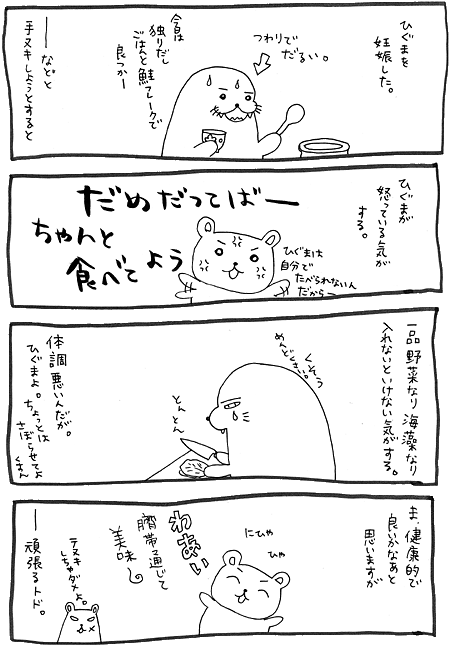 ひぐまを
妊娠した。
つわりで
だるい。
今日は
独りだし
ごはんと鮭フレークで
良っかー
――などと
手ヌキしようとすると
ひぐまが
怒っている気が
する。
だめだってばー
ちゃんと
食べてよう
ひぐまは
自分で
たべられないん
だからー
一品野菜なり海藻なり
入れないといけない気がする。
くそう
めんどくさい。
とんとん
体調悪いんだが。
ひぐまよ。ちょっとは
さぼらせてよ
くまん
ま、健康的で
良いかなあと
思いますが
にひゃ
ひゃ
わぁい
臍帯通じて
美味し
テヌキ
しちゃダメよ。
――頑張るトド。